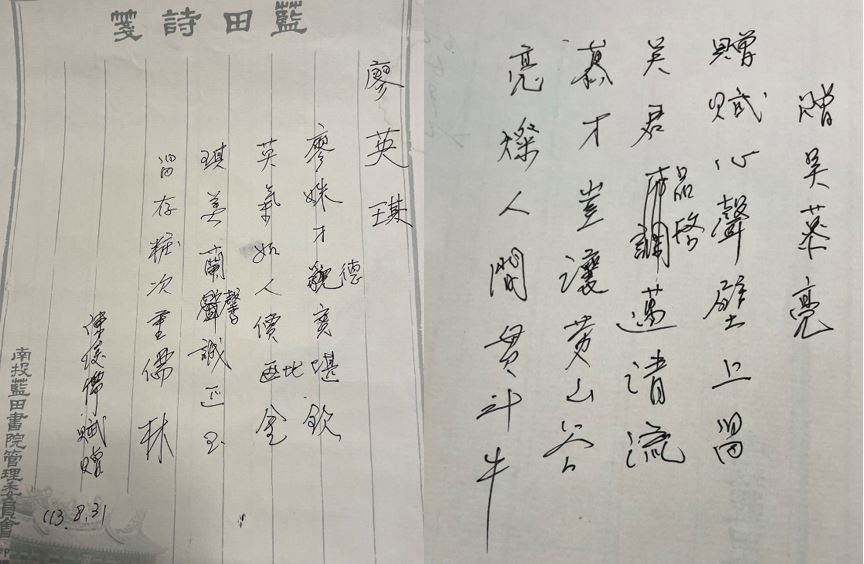 藍田詩箋
廖英琪
廖姝才德實堪欽
英氣如人價比金
琪美蘭馨誠匹玉
留存粧次重儒林
陳俊儒賦贈
113.8.31
南投藍田書院管理委員會印
贈吳慕亮
贈賦心聲壁上留
吳君品格邁清流
慕才豈讓黃山谷
亮燦人間貫斗牛